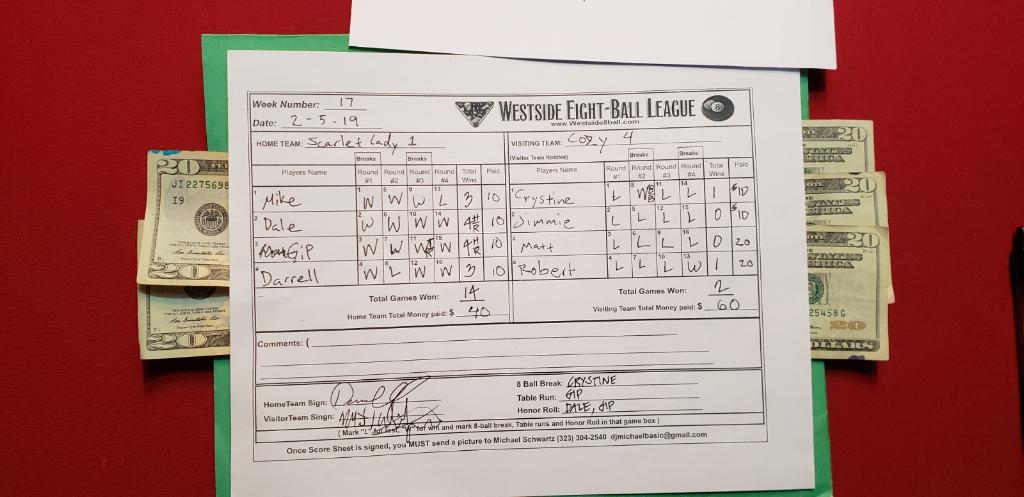 Week Number: 17
Date: 2-5-19
WESTSIDE EIGHT-BALL LEAGUE
www.Westside8ball.com
8
HOME TEAM: Scarlet Lady 1
VISITING TEAM: Cozy 4
(Visitor Team Rotates)
Breaks Breaks
Players Name Round #1 Round #2 Round #3 Round #4 Total Wins Paid
1 Mike 1 W 5 W 9 W 13 L 3 10
2 Dale 2 W 6 W 10 W 14 W 4 HR 10
3 Gip 3 W 7 W 11 W 15 W 4 HR 10
4 Darrell 4 W 8 L 12 W 16 W 3 10
Total Games Won: 14
Home Team Total Money paid: $ 40
Breaks Breaks
Players Name Round #1 Round #2 Round #3 Round #4 Total Wins Paid
1 Crystine 1 L 8 W 8B 11 L 14 L 1 $10
2 Jimmie 2 L 5 L 12 L 15 L 0 $10
3 Matt 3 L 6 L 9 L 16 L 0 20
4 Robert 4 L 7 L 10 L 13 W 1 20
Total Games Won: 2
Visiting Team Total Money paid: $ 60
Comments: (
HomeTeam Sign:
VisitorTeam Singn:
8 Ball Break: CRYSTINE
Table Run: GIP
Honor Roll: DALE, GIP
( Mark "L" for lost, "W" for win and mark 8-ball break, Table runs and Honor Roll in that game box )
Once Score Sheet is signed, you MUST send a picture to Michael Schwartz (323) 304-2540 djmichaelbasic@gmail.com
20
JI 2275698
I9
20
20
20
20
25458G
20
DOLLARS